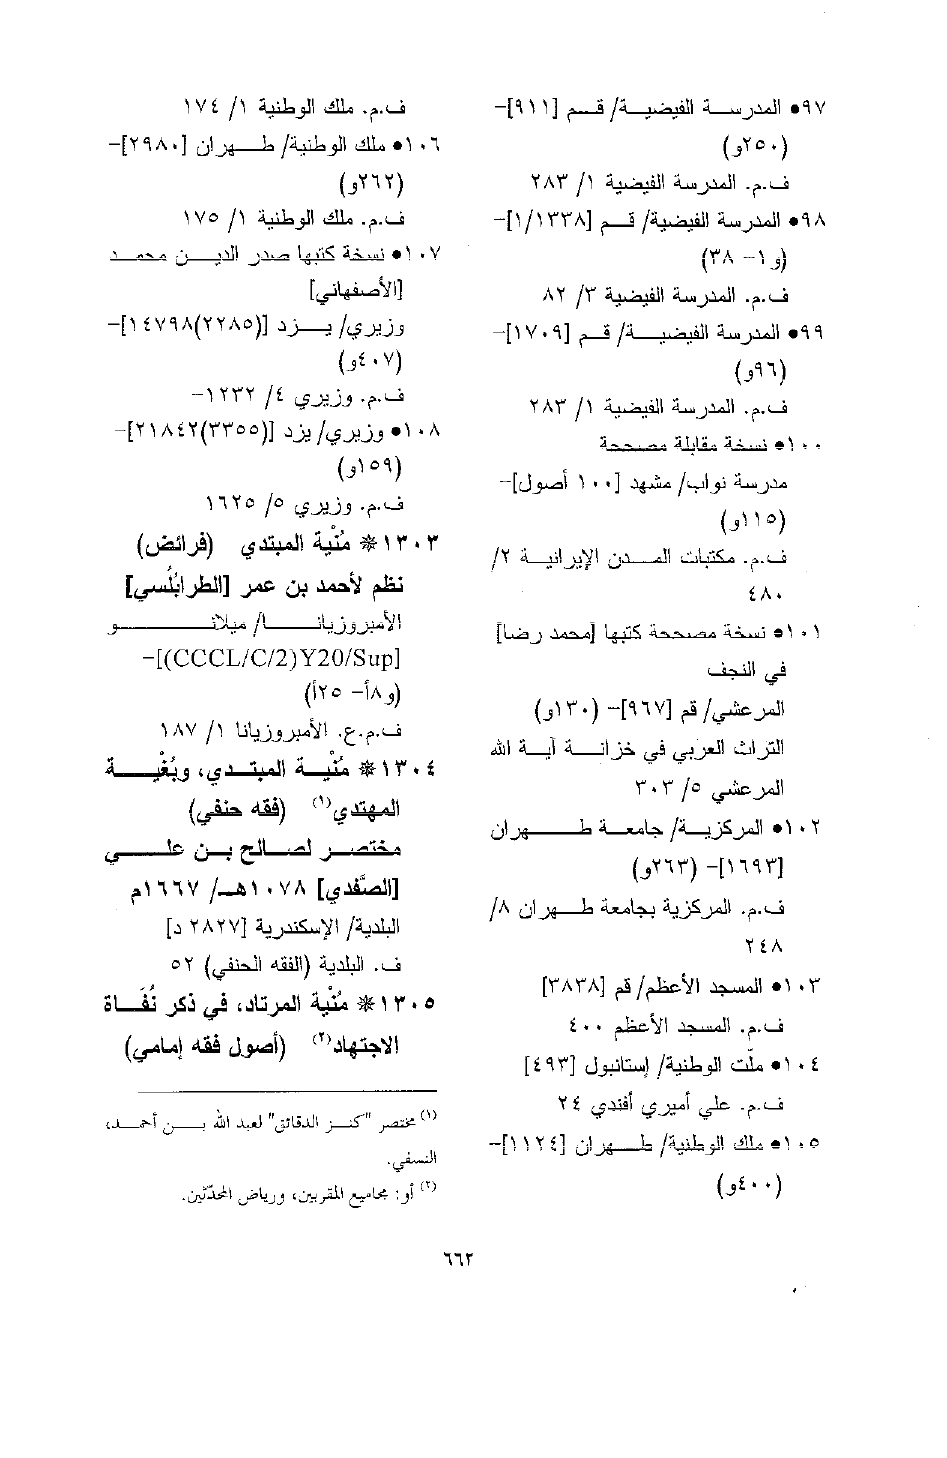 ٩٧• المدرسة الفيضية/ قم [٩١١]-
(٢٥٠و)
ف.م. المدرسة الفيضية ١/ ٢٨٣
٩٨• المدرسة الفيضية/ قم [١/١٣٣٨]-
(و١- ٣٨)
ف.م. المدرسة الفيضية ٣/ ٨٢
٩٩• المدرسة الفيضية/ قم [١٧٠٩]-
(٩٦و)
ف.م. المدرسة الفيضية ١/ ٢٨٣
١٠٠• نسخة مقابلة مصححة
مدرسة نواب/ مشهد [١٠٠ أصول]-
(١١٥و)
ف.م. مكتبات المدن الإيرانية ٢/
٤٨٠
١٠١• نسخة مصححة كتبها [محمد رضا]
في النجف
المرعشي/ قم [٩٦٧]- (١٣٠و)
التراث العربي في خزانة آية الله
المرعشي ٥/ ٣٠٣
١٠٢• المركزية/ جامعة طهران
[١٦٩٣]- (٢٦٣و)
ف.م. المركزية بجامعة طهران ٨/
٢٤٨
١٠٣• المسجد الأعظم/ قم [٣٨٣٨]
ف.م. المسجد الأعظم ٤٠٠
١٠٤• ملّت الوطنية/ إستانبول [٤٩٣]
ف.م. علي أميري أفندي ٢٤
١٠٥• ملك الوطنية/ طهران [١١٢٤]-
(٤٠٠و)
ف.م. ملك الوطنية ١/ ١٧٤
١٠٦• ملك الوطنية/ طهران [٢٩٨٠]-
(٢٦٢و)
ف.م. ملك الوطنية ١/ ١٧٥
١٠٧• نسخة كتبها صدر الدين محمد
[الأصفهاني]
وزيري/ يزد [(٢٢٨٥)١٤٧٩٨]-
(٤٠٧و)
ف.م. وزيري ٤/ ١٢٣٢-
١٠٨• وزيري/ يزد [(٣٣٥٥)٢١٨٤٢]-
(١٥٩و)
ف.م. وزيري ٥/ ١٦٢٥
١٣٠٣* مُنْية المبتدي (فرائض)
نظم لأحمد بن عمر [الطرابُلُسي]
الأمبروزيانا/ ميلانو
[(CCCL/C/2)Y20/Sup]-
(و٨أ- ٢٥أ)
ف.م.ع. الأمبروزيانا ١/ ١٨٧
١٣٠٤* مُنْية المبتدي، وبُغْية
المهتدي(١) (فقه حنفي)
مختصر لصالح بن علي
[الصَّفدي] ١٠٧٨هـ/ ١٦٦٧م
البلدية/ الإسكندرية [٢٨٢٧ د]
ف. البلدية (الفقه الحنفي) ٥٢
١٣٠٥* مُنْية المرتاد، في ذكر نُفَاة
الاجتهاد(٢) (أصول فقه إمامي)
(١) مختصر "كنز الدقائق" لعبد الله بن أحمد،
النسفي.
(٢) أو: مجاميع المقربين، ورياض المحدّثين.
٦٦٢